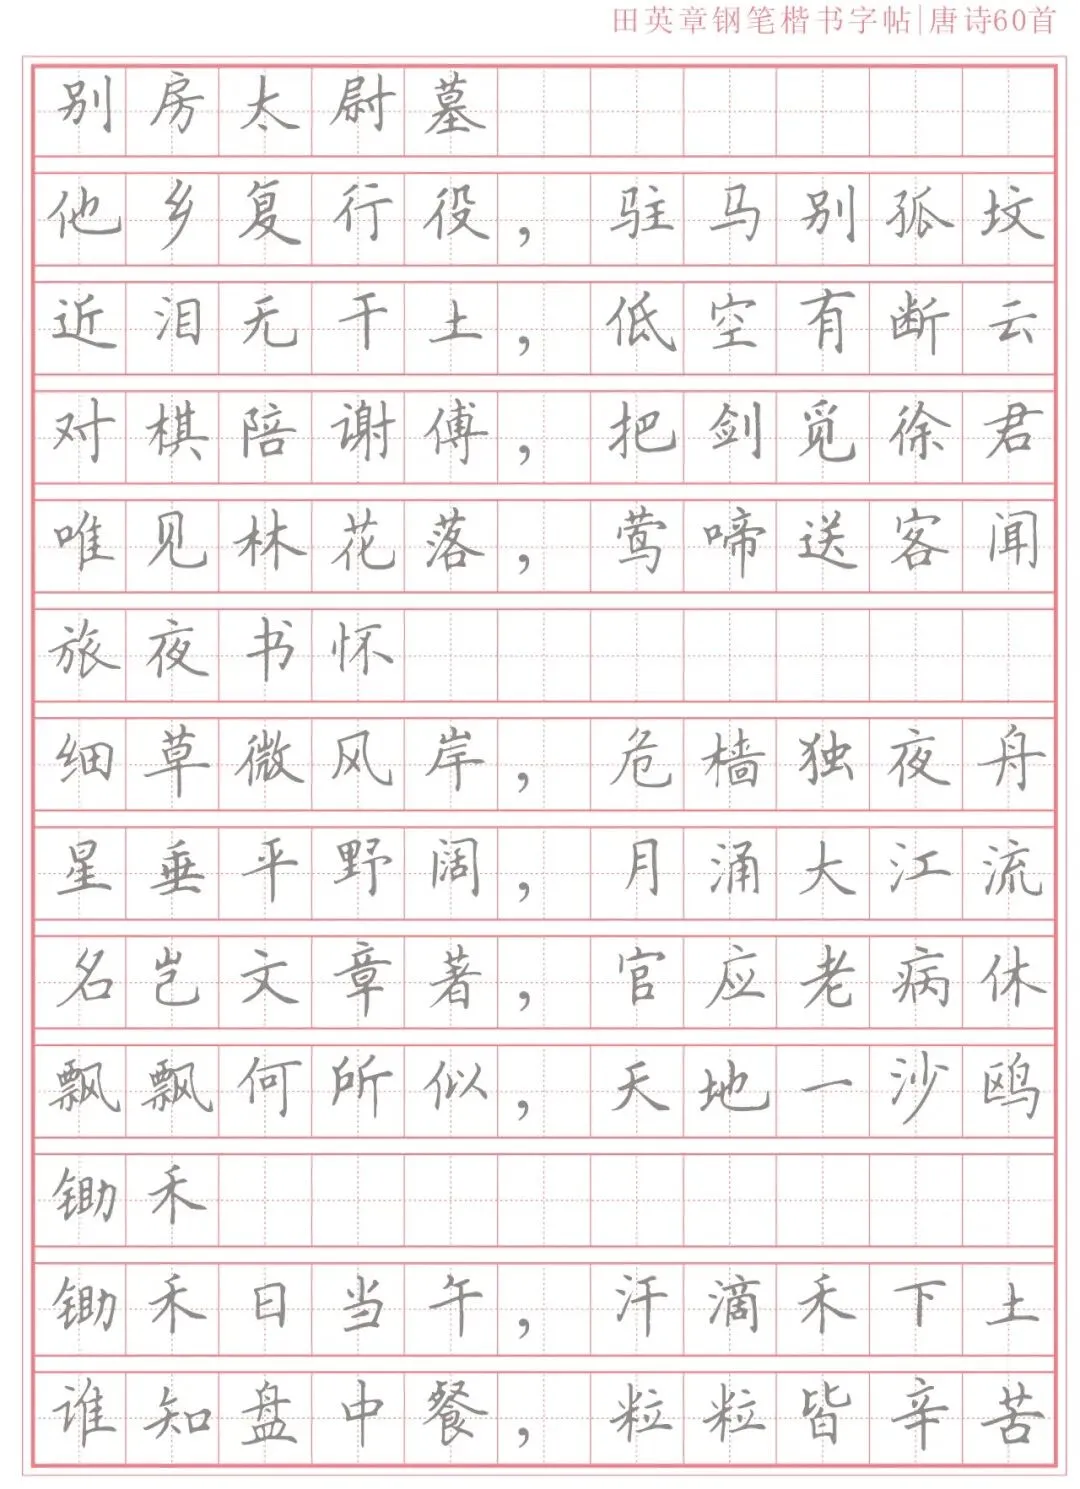 田英章钢笔楷书字帖|唐诗60首
别房太尉墓
他乡复行役，驻马别孤坟
近泪无干土，低空有断云
对棋陪谢傅，把剑觅徐君
唯见林花落，莺啼送客闻
旅夜书怀
细草微风岸，危樯独夜舟
星垂平野阔，月涌大江流
名岂文章著，官应老病休
飘飘何所似，天地一沙鸥
锄禾
锄禾日当午，汗滴禾下土
谁知盘中餐，粒粒皆辛苦